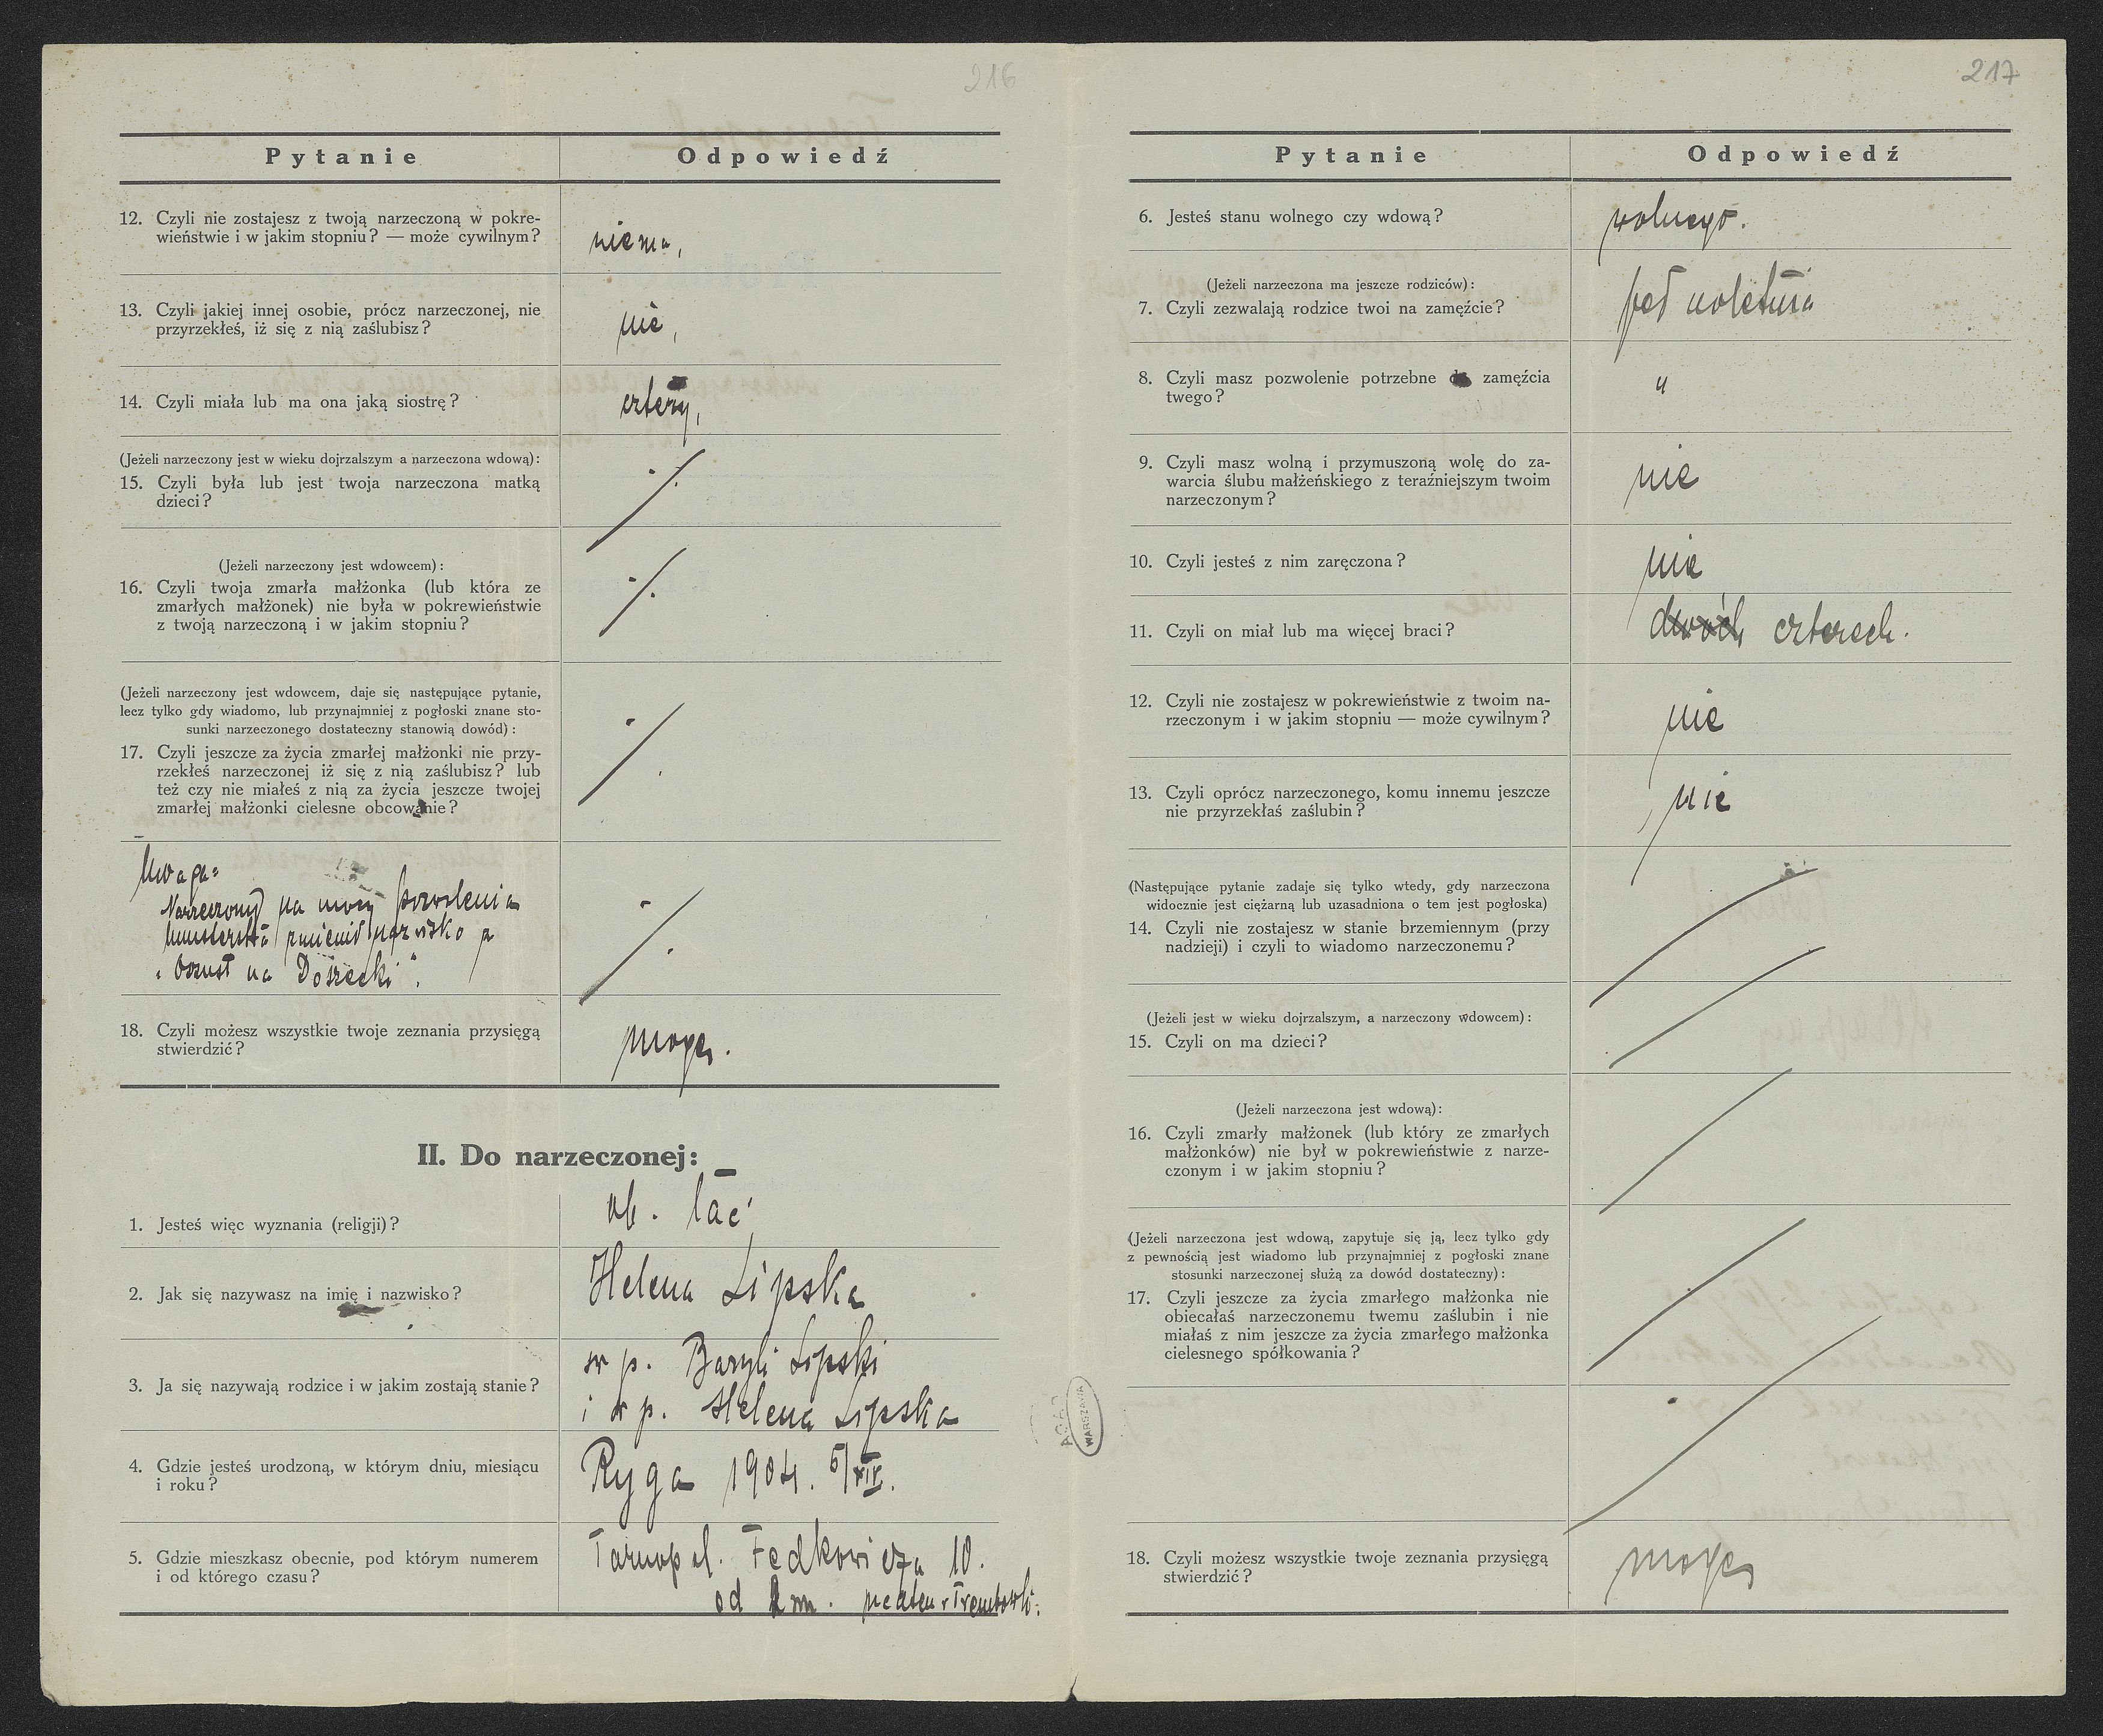 216
Pytanie
Odpowiedź
12. Czyli nie zostajesz z twoją narzeczoną w pokre-
wieństwie i w jakim stopniu? — może cywilnym?
niema,
13. Czyli jakiej innej osobie, prócz narzeczonej, nie
przyrzekłeś, iż się z nią zaślubisz?
nie,
14. Czyli miała lub ma ona jaką siostrę?
cztery,
(Jeżeli narzeczony jest w wieku dojrzalszym a narzeczona wdową):
15. Czyli była lub jest twoja narzeczona matką
dzieci?
(Jeżeli narzeczony jest wdowcem):
16. Czyli twoja zmarła małżonka (lub która ze
zmarłych małżonek) nie była w pokrewieństwie
z twoją narzeczoną i w jakim stopniu?
(Jeżeli narzeczony jest wdowcem, daje się następujące pytanie,
lecz tylko gdy wiadomo, lub przynajmniej z pogłoski znane sto-
sunki narzeczonego dostateczny stanowią dowód):
17. Czyli jeszcze za życia zmarłej małżonki nie przy-
rzekłeś narzeczonej iż się z nią zaślubisz? lub
też czy nie miałeś z nią za życia jeszcze twojej
zmarłej małżonki cielesne obcowanie?
Uwaga:
Narzeczony na mocy pozwolenia
zmienił nazwisko z
na Dorzecki".
18. Czyli możesz wszystkie twoje zeznania przysięgą
stwierdzić?
mogę.
II. Do narzeczonej:
1. Jesteś więc wyznania (religji)?
ob. łać
2. Jak się nazywasz na imię i nazwisko?
Helena Lipska
3. Ja się nazywają rodzice i w jakim zostają stanie?
śp. Bazyli Lipski
i śp. Helena Lipska
4. Gdzie jesteś urodzoną, w którym dniu, miesiącu
i roku?
Ryga 1904. 5/XII.
5. Gdzie mieszkasz obecnie, pod którym numerem
i od którego czasu?
Tarnopol. Fedkowicza 10.
od 2 m.
WARSZAWA
217
Pytanie
Odpowiedź
6. Jesteś stanu wolnego czy wdową?
wolnego.
(Jeżeli narzeczona ma jeszcze rodziców):
7. Czyli zezwalają rodzice twoi na zamęźcie?
pełnoletnia
8. Czyli masz pozwolenie potrzebne do zamęźcia
twego?
"
9. Czyli masz wolną i przymuszoną wolę do za-
warcia ślubu małżeńskiego z teraźniejszym twoim
narzeczonym?
nie
10. Czyli jesteś z nim zaręczona?
nie
11. Czyli on miał lub ma więcej braci?
dwóch czterech.
12. Czyli nie zostajesz w pokrewieństwie z twoim na-
rzeczonym i w jakim stopniu — może cywilnym?
nie
13. Czyli oprócz narzeczonego, komu innemu jeszcze
nie przyrzekłaś zaślubin?
nie
(Następujące pytanie zadaje się tylko wtedy, gdy narzeczona
widocznie jest ciężarną lub uzasadniona o tem jest pogłoska)
14. Czyli nie zostajesz w stanie brzemiennym (przy
nadzieji) i czyli to wiadomo narzeczonemu?
(Jeżeli jest w wieku dojrzalszym, a narzeczony wdowcem):
15. Czyli on ma dzieci?
(Jeżeli narzeczona jest wdową):
16. Czyli zmarły małżonek (lub który ze zmarłych
małżonków) nie był w pokrewieństwie z narze-
czonym i w jakim stopniu?
(Jeżeli narzeczona jest wdową, zapytuje się ją, lecz tylko gdy
z pewnością jest wiadomo lub przynajmniej z pogłoski znane
stosunki narzeczonej służą za dowód dostateczny):
17. Czyli jeszcze za życia zmarłego małżonka nie
obiecałaś narzeczonemu twemu zaślubin i nie
miałaś z nim jeszcze za życia zmarłego małżonka
cielesnego spółkowania?
18. Czyli możesz wszystkie twoje zeznania przysięgą
stwierdzić?
mogę